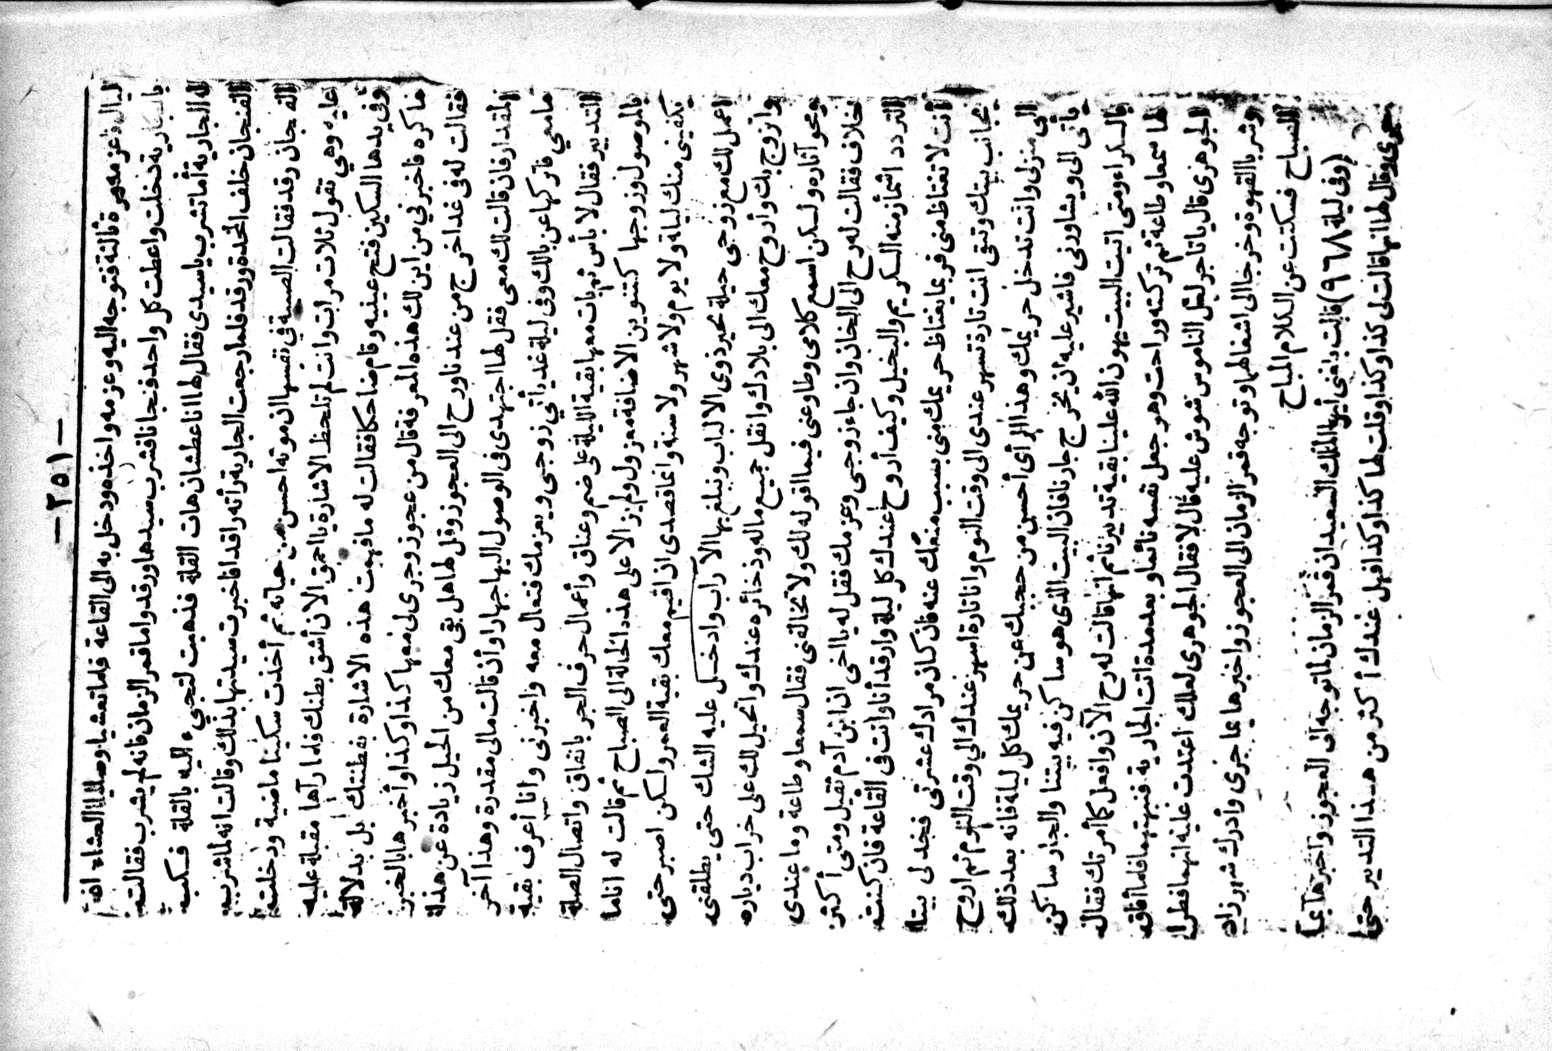 — ٢٥١ —
ليال ذا عزمه مرة ثالثة فتوجه اليه وعزمه واخذه ودخل به الى القاعة فلما تعشيا وصليا العشاء اذا
بالجارية دخلت واعطت كل واحد فنجانا فشرب سيدها ورقد واما قمر الزمان فانه لم يشرب فقالت
له الجارية أما تشرب ياسيدى فقال لها انا عطشان هات القلة فذهبت لتجيء اليه بالقلة فكب
الفنجان خلف المخدة ورقد فلما رجعت الجارية رأته راقدا فاخبرت سيدتها بذلك وقالت انه لما شرب
الفنجان رقد فقالت الصبية في نفسها ان موته احسن من حياته ثم أخذت سكينا ماضية ودخلت
عليه وهي تقول ثلاث مرات وانت لم تلحظ الاشارة يا احمق الان أشق بطنك فلما رآها مقبلة عليه
وفي يدها السكين فتح عينيه وقام ضاحكا فقالت له ما فهمت هذه الاشارة بفطنتك بل بدلالة
ماكره فاخبرني من اين لك هذه المعرفة قال من عجوز وجرى لى معها كذا وكذا وأخبرها بالخبر
فقالت له في غد اخرج من عندنا ورح الى العجوز وقل لها هل بقى معك من الحيل زيادة عن هذا
المقدار فان قالت لك معى فقل لها اجتهدى فى الوصول اليها جهارا وان قالت مالى مقدرة وهذا آخر
مامعي فاتركها عن بالك وفى ليلة غد يأتي زوجى ويعزمك فتعال معه واخبرنى وانا أعرف بقية
التدبير فقال لا بأس ثم بات معها بقية الليلة على ضم وعناق وأعمال حرف الجر باتفاق واتصال الصلة
بالموصول وزوجها كتنوين الاضافة معزول ولم يزالا على هذه الحالة الى الصباح ثم قالت له اناما
يكفينى منك ليلة ولا يوم ولا شهر ولا سنة وانما قصدى ان اقيم معك بقية العمر ولكن اصبر حتى
اعمل لك مع زوجى حيلة تحير ذوى الالباب ونبلغ بها الآراب وادخل عليه الشك حتى يطلقنى
واتزوج بك وأروح معك الى بلادك وانقل جميع ماله وذخائره عندك واتحيل لك على خراب دياره
ومحو آثاره ولكن اسمع كلامى وطاوعنى فيما اقوله لك ولا تخالفنى فقال سمعا وطاعة وما عندى
خلاف فقالت له رح الى الخان وان جاء زوجى وعزمك فقل له يا اخى ان ابن آدم ثقيل ومتى أكثر
التردد اشمأز منه الكريم والبخيل وكيف أروح عندك كل ليلة وارقد أنا وأنت فى القاعة فان كنت
أنت لا تغتاظ منى فربما يغتاظ حريمك منى بسبب منعك عنه فان كان مرادك عشرتى فخذ لى بيتا
بجانب بيتك وتبقى انت تارة تسهر عندى الى وقت النوم وانا تارة اسهر عندك الي وقت النوم ثم اروح
الى منزلى وانت تدخل حريمك وهذا الرأى أحسن من حجبك عن حريمك كل ليلة فانه بعد ذلك
يأتى الى ويشاورنى فاشير عليه ان يخرج جارنا فان البيت الذى هو ساكن فيه بيتنا والجار ساكن
بالكراء ومتى اتيت البيت يهون الله علينا بقية تدبيرنا ثم انها قالت له رح الآن وافعل كما أمرتك فقال
لها سمعا وطاعة ثم تركته وراحت وهو جعل نفسه نائما وبعد مدة اتت الجارية فنبهتهما فلما افاق
الجوهرى قال ياتاجر لعل الناموس شوش عليك قال لا فقال الجوهرى لعلك اعتدت عليه ثم انهما فطرا
وشربا القهوة وخرجا الى اشغالهما وتوجه قمر الزمان الى العجوز واخبرها بما جرى وأدرك شهرزاد
الصباح فسكتت عن الكلام المباح
(وفى ليلة ٩٦٨) قالت بلغنى أيها الملك السعيد ان قمر الزمان لما توجه الى العجوز واخبرها بما
جرى وقال لها انها قالت لى كذا وكذا وقلت لها كذا وكذا فهل عندك أكثر من هذا التدبير حتى